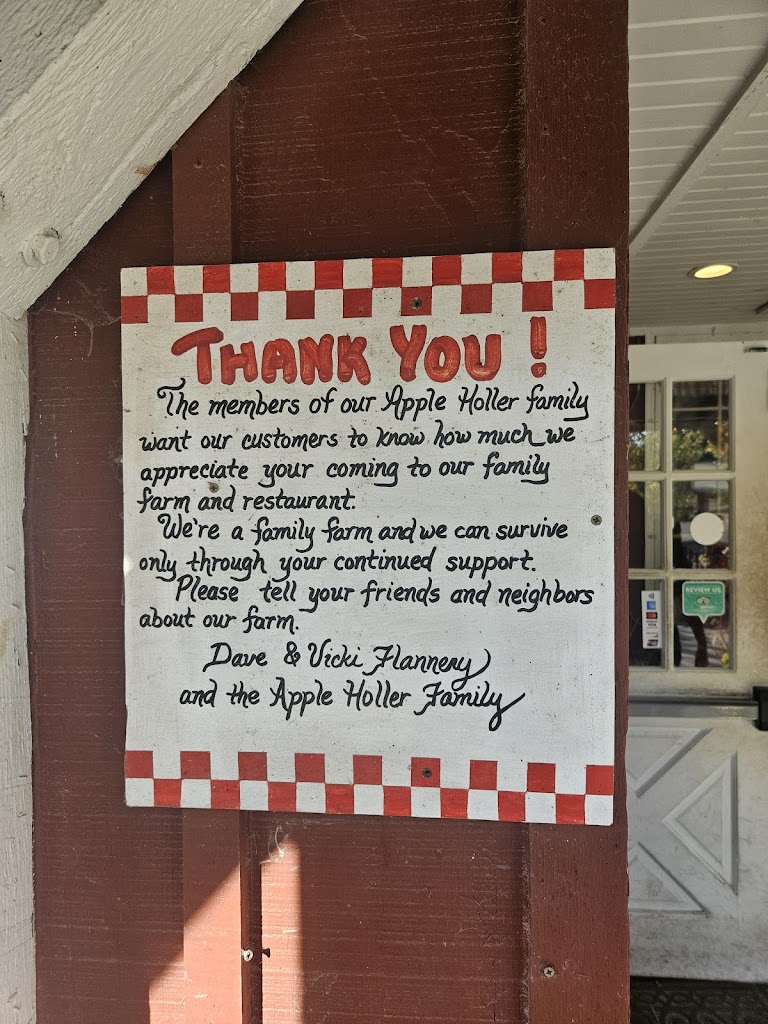 THANK YOU !
The members of our Apple Holler family
want our customers to know how much we
appreciate your coming to our family
farm and restaurant.
We're a family farm and we can survive
only through your continued support.
Please tell your friends and neighbors
about our farm.
Dave & Vicki Flannery
and the Apple Holler Family
REVIEW US
VISA